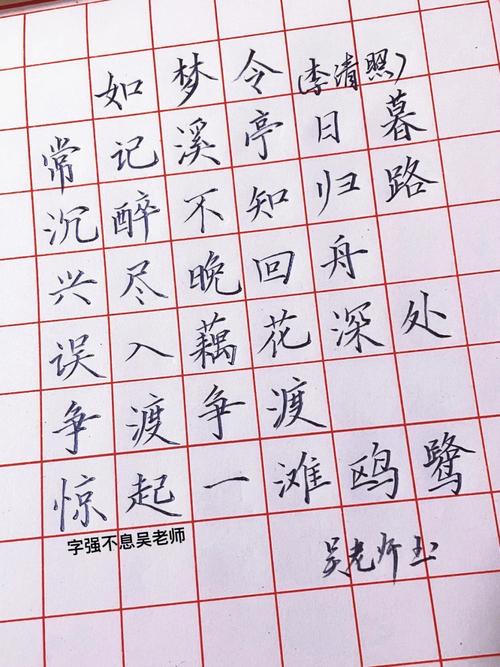 如梦令(李清照)
常记溪亭日暮
沉醉不知归路
兴尽晚回舟
误入藕花深处
争渡争渡
惊起一滩鸥鹭
字强不息吴老师
吴老师书